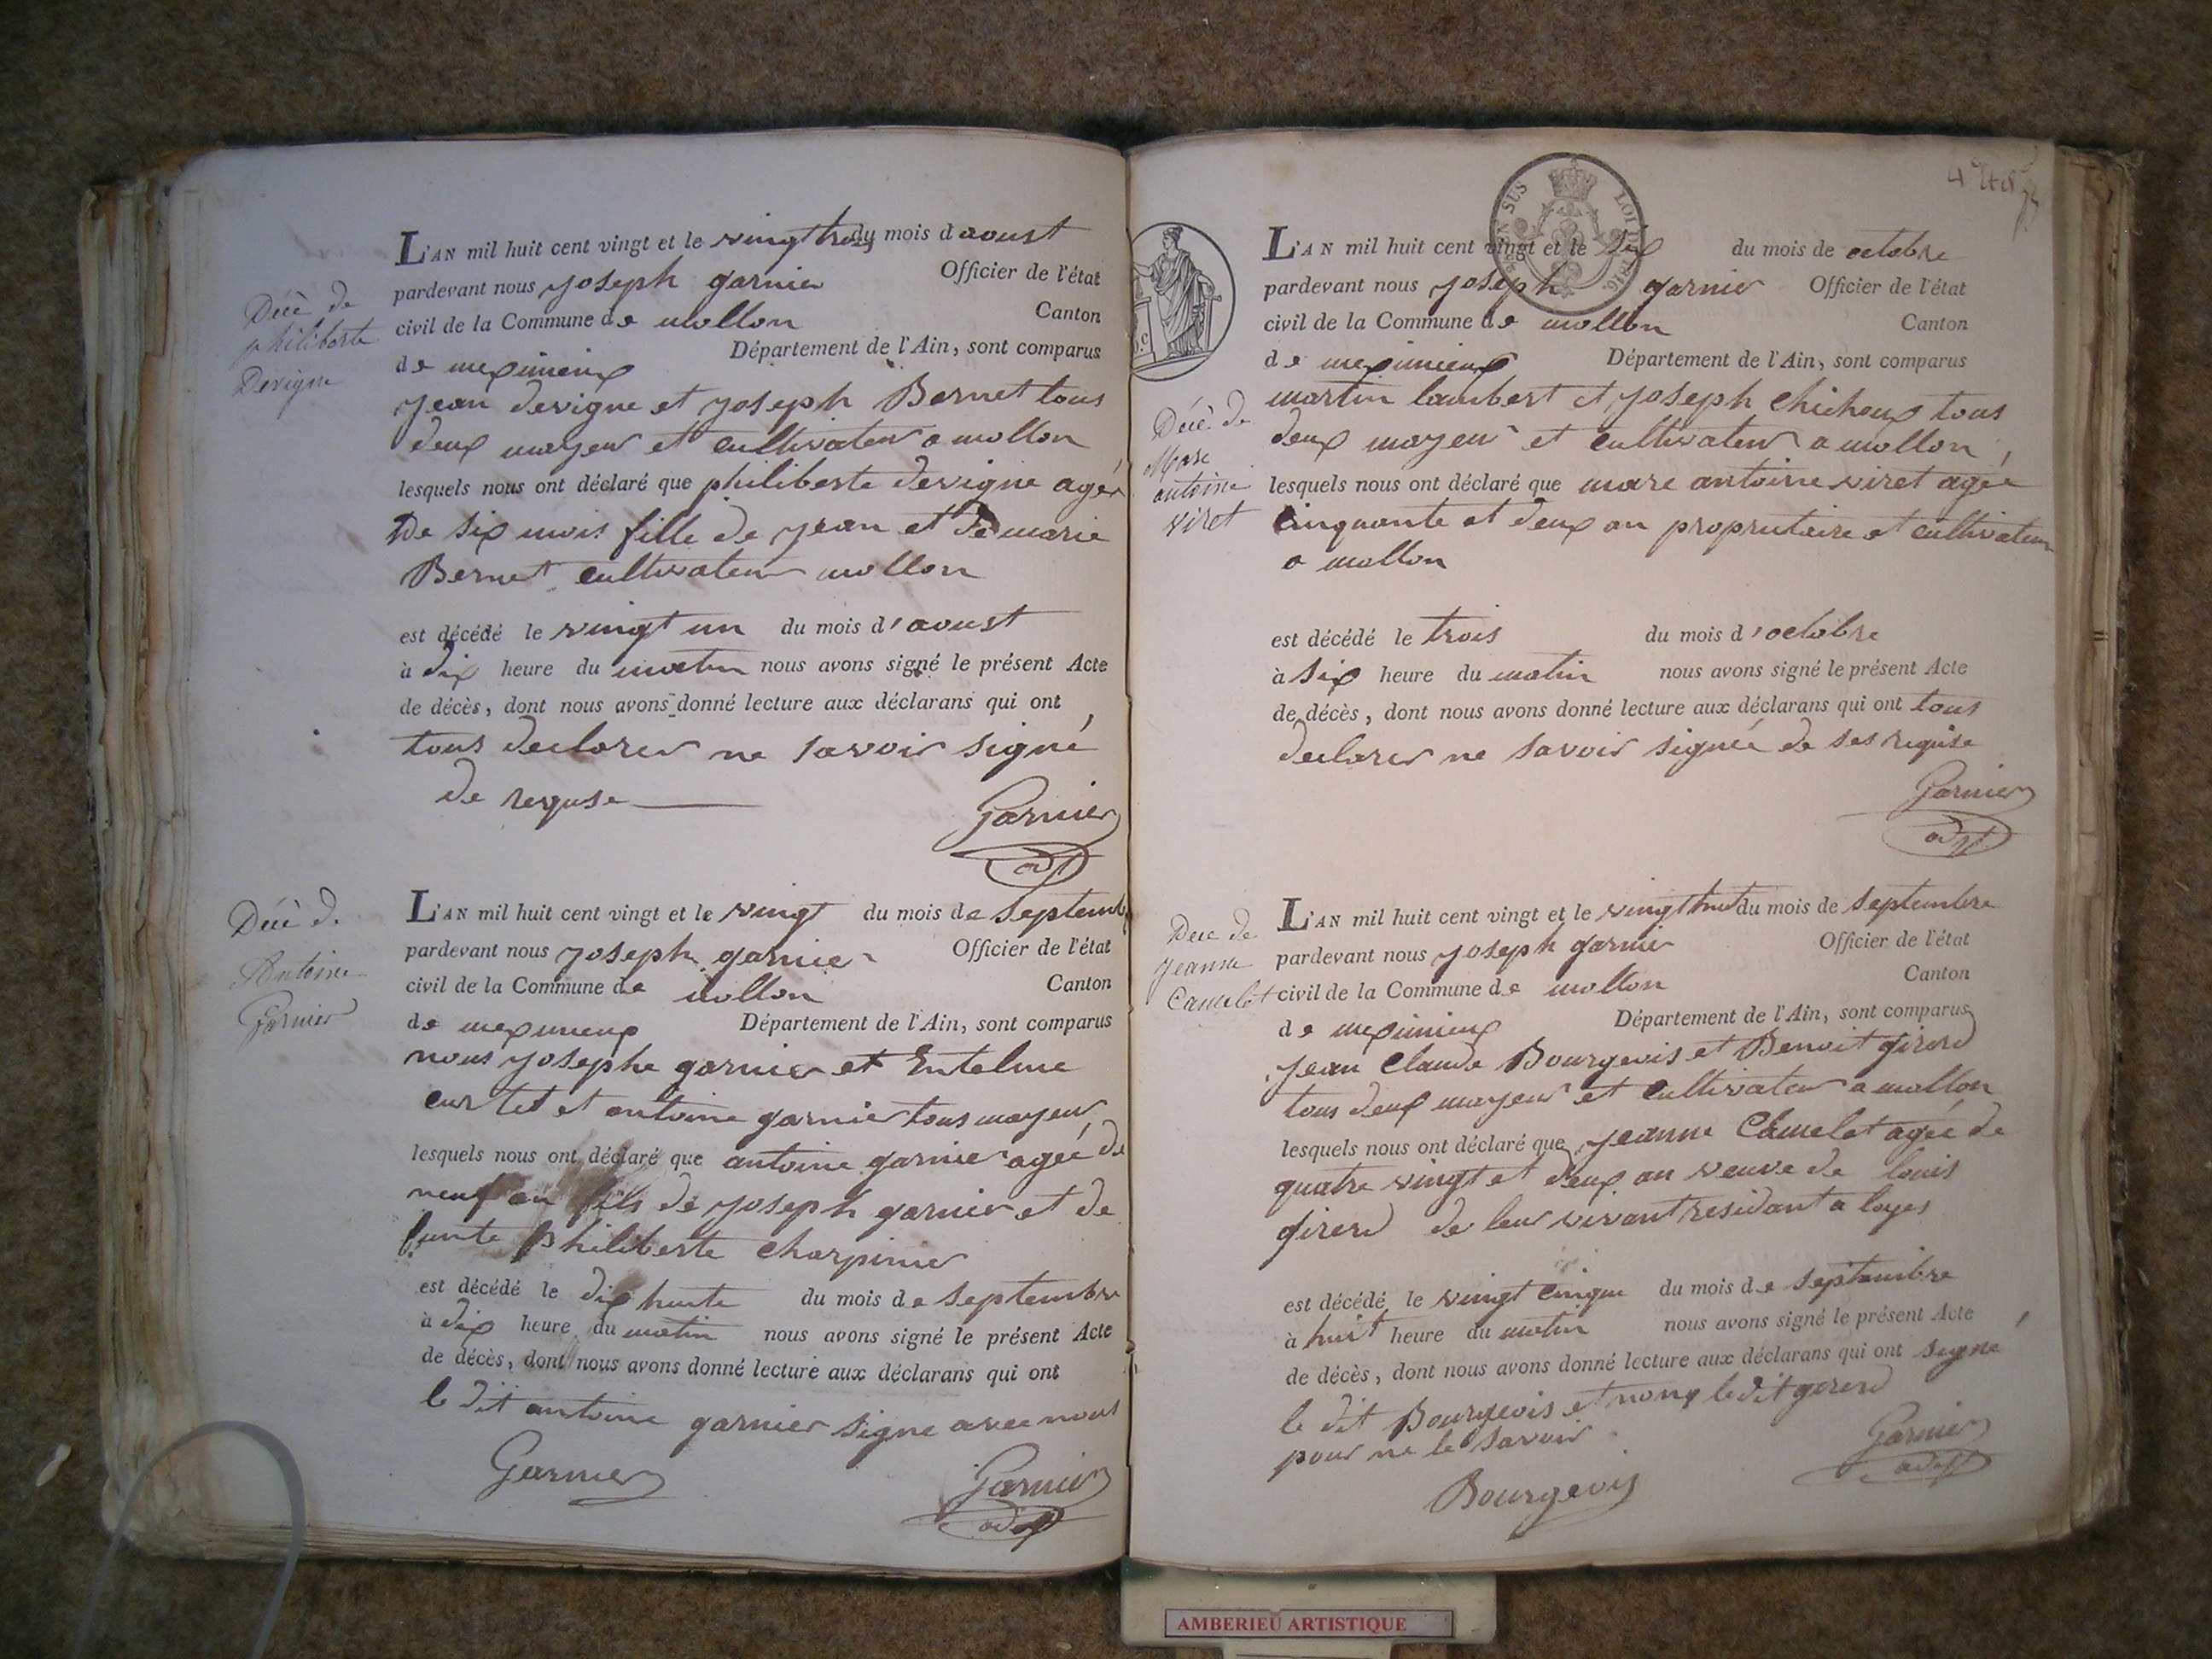 Décè de
philiberte
Devigne
L'AN mil huit cent vingt et le vingt trois du mois d aoust
pardevant nous joseph garnier Officier de l'état
civil de la Commune de mollon Canton
de meximieux Département de l'Ain, sont comparus
jean devigne et joseph Bernet tous
deux mayeur et cultivateur a mollon
lesquels nous ont déclaré que philiberte devigne agée
De six mois fille de jean et de marie
Bernet cultivateur mollon
est décédé le vingt un du mois d'aoust
à dix heure du matin nous avons signé le présent Acte
de décès, dont nous avons donné lecture aux déclarans qui ont
tous declarer ne savoir signé
de requse
Garnier
adjt
Décè de
Antoine
Garnier
L'AN mil huit cent vingt et le vingt du mois de Septemb
pardevant nous joseph garnier Officier de l'état
civil de la Commune de mollon Canton
de meximieux Département de l'Ain, sont comparus
nous josephe garnier et Entelme
curtet et antoine garnier tous mayeur
lesquels nous ont déclaré que antoine garnier agée de
neuf an fils de joseph garnier et de
funte philiberte charpinier
est décédé le dix huite du mois de septembre
à dix heure du matin nous avons signé le présent Acte
de décès, dont nous avons donné lecture aux déclarans qui ont
le dit antoine garnier signe avec nous
Garnier Garnier
adjt
SUS LOI DE 1816
L'AN mil huit cent vingt et le six du mois de octobre
pardevant nous joseph garnier Officier de l'état
civil de la Commune de mollon Canton
de meximieux Département de l'Ain, sont comparus
Décè de
Marc
antoine
viret
martin lambert et joseph chichoux tous
deux mayeur et cultivateur a mollon
lesquels nous ont déclaré que marc antoine viret agée
cinquante et deux an propriutaire et cultivateur
a mollon
est décédé le trois du mois d'octobre
à six heure du matin nous avons signé le présent Acte
de décès, dont nous avons donné lecture aux déclarans qui ont tous
declarer ne savoir signée de ses requise
Garnier
adjt
Dece de
jeanne
Camelot
L'AN mil huit cent vingt et le vingt huit du mois de septembre
pardevant nous joseph garnier Officier de l'état
civil de la Commune de mollon Canton
de meximieux Département de l'Ain, sont comparus
jean claude Bourgeois et Benoit girerd
tous deux mayeur et cultivateur a mollon
lesquels nous ont déclaré que jeanne Camelot agée de
quatre vingt et deux an veuve de louis
girerd de leur vivant residant a loyes
est décédé le vingt cinque du mois de septembre
à huit heure du matin nous avons signé le présent Acte
de décès, dont nous avons donné lecture aux déclarans qui ont signé
le dit Bourgeois et nonx ledit girerd
pour ne le savoir
Bourgeois Garnier
adjt
AMBERIEU ARTISTIQUE